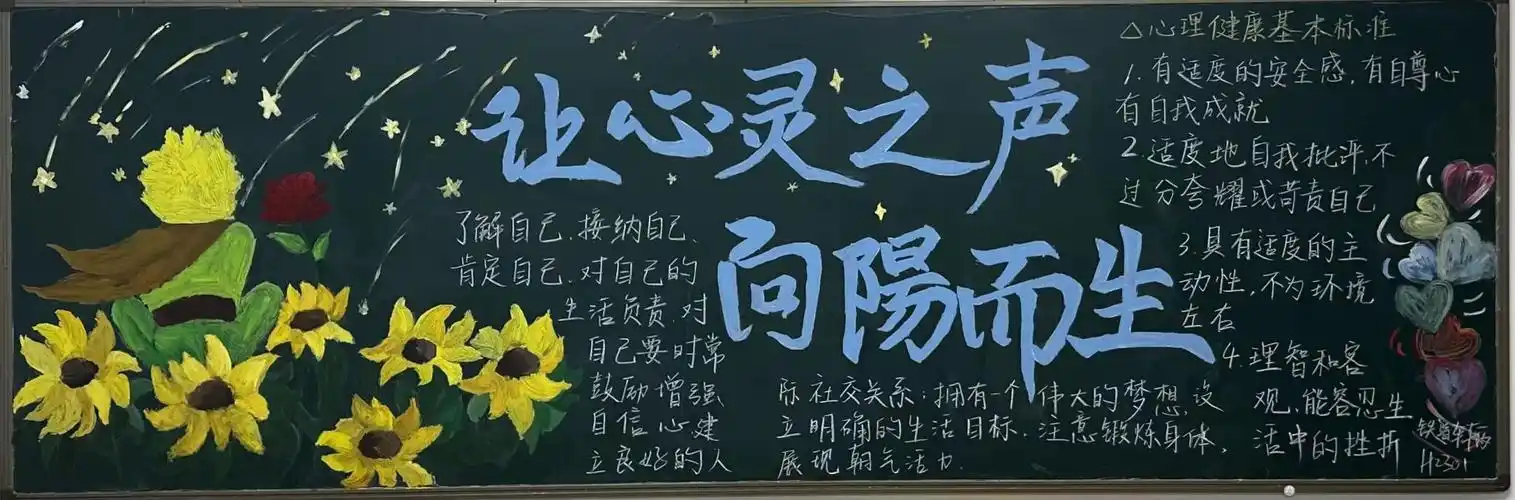 让心灵之声
向陽而生
了解自己.接纳自己.
肯定自己.对自己的
生活负责.对
自己要时常
鼓励增强
自信心建
立良好的人
际社交关系;拥有一个伟大的梦想.设
立明确的生活目标.注意锻炼身体,
展现朝气活力.
△心理健康基本标准
1.有适度的安全感,有自尊心
有自我成就
2.适度地自我批评,不
过分夸耀或苛责自己
3.具有适度的主
动性,不为环境
左右
4.理智和客
观,能容忍生
活中的挫折
H2301